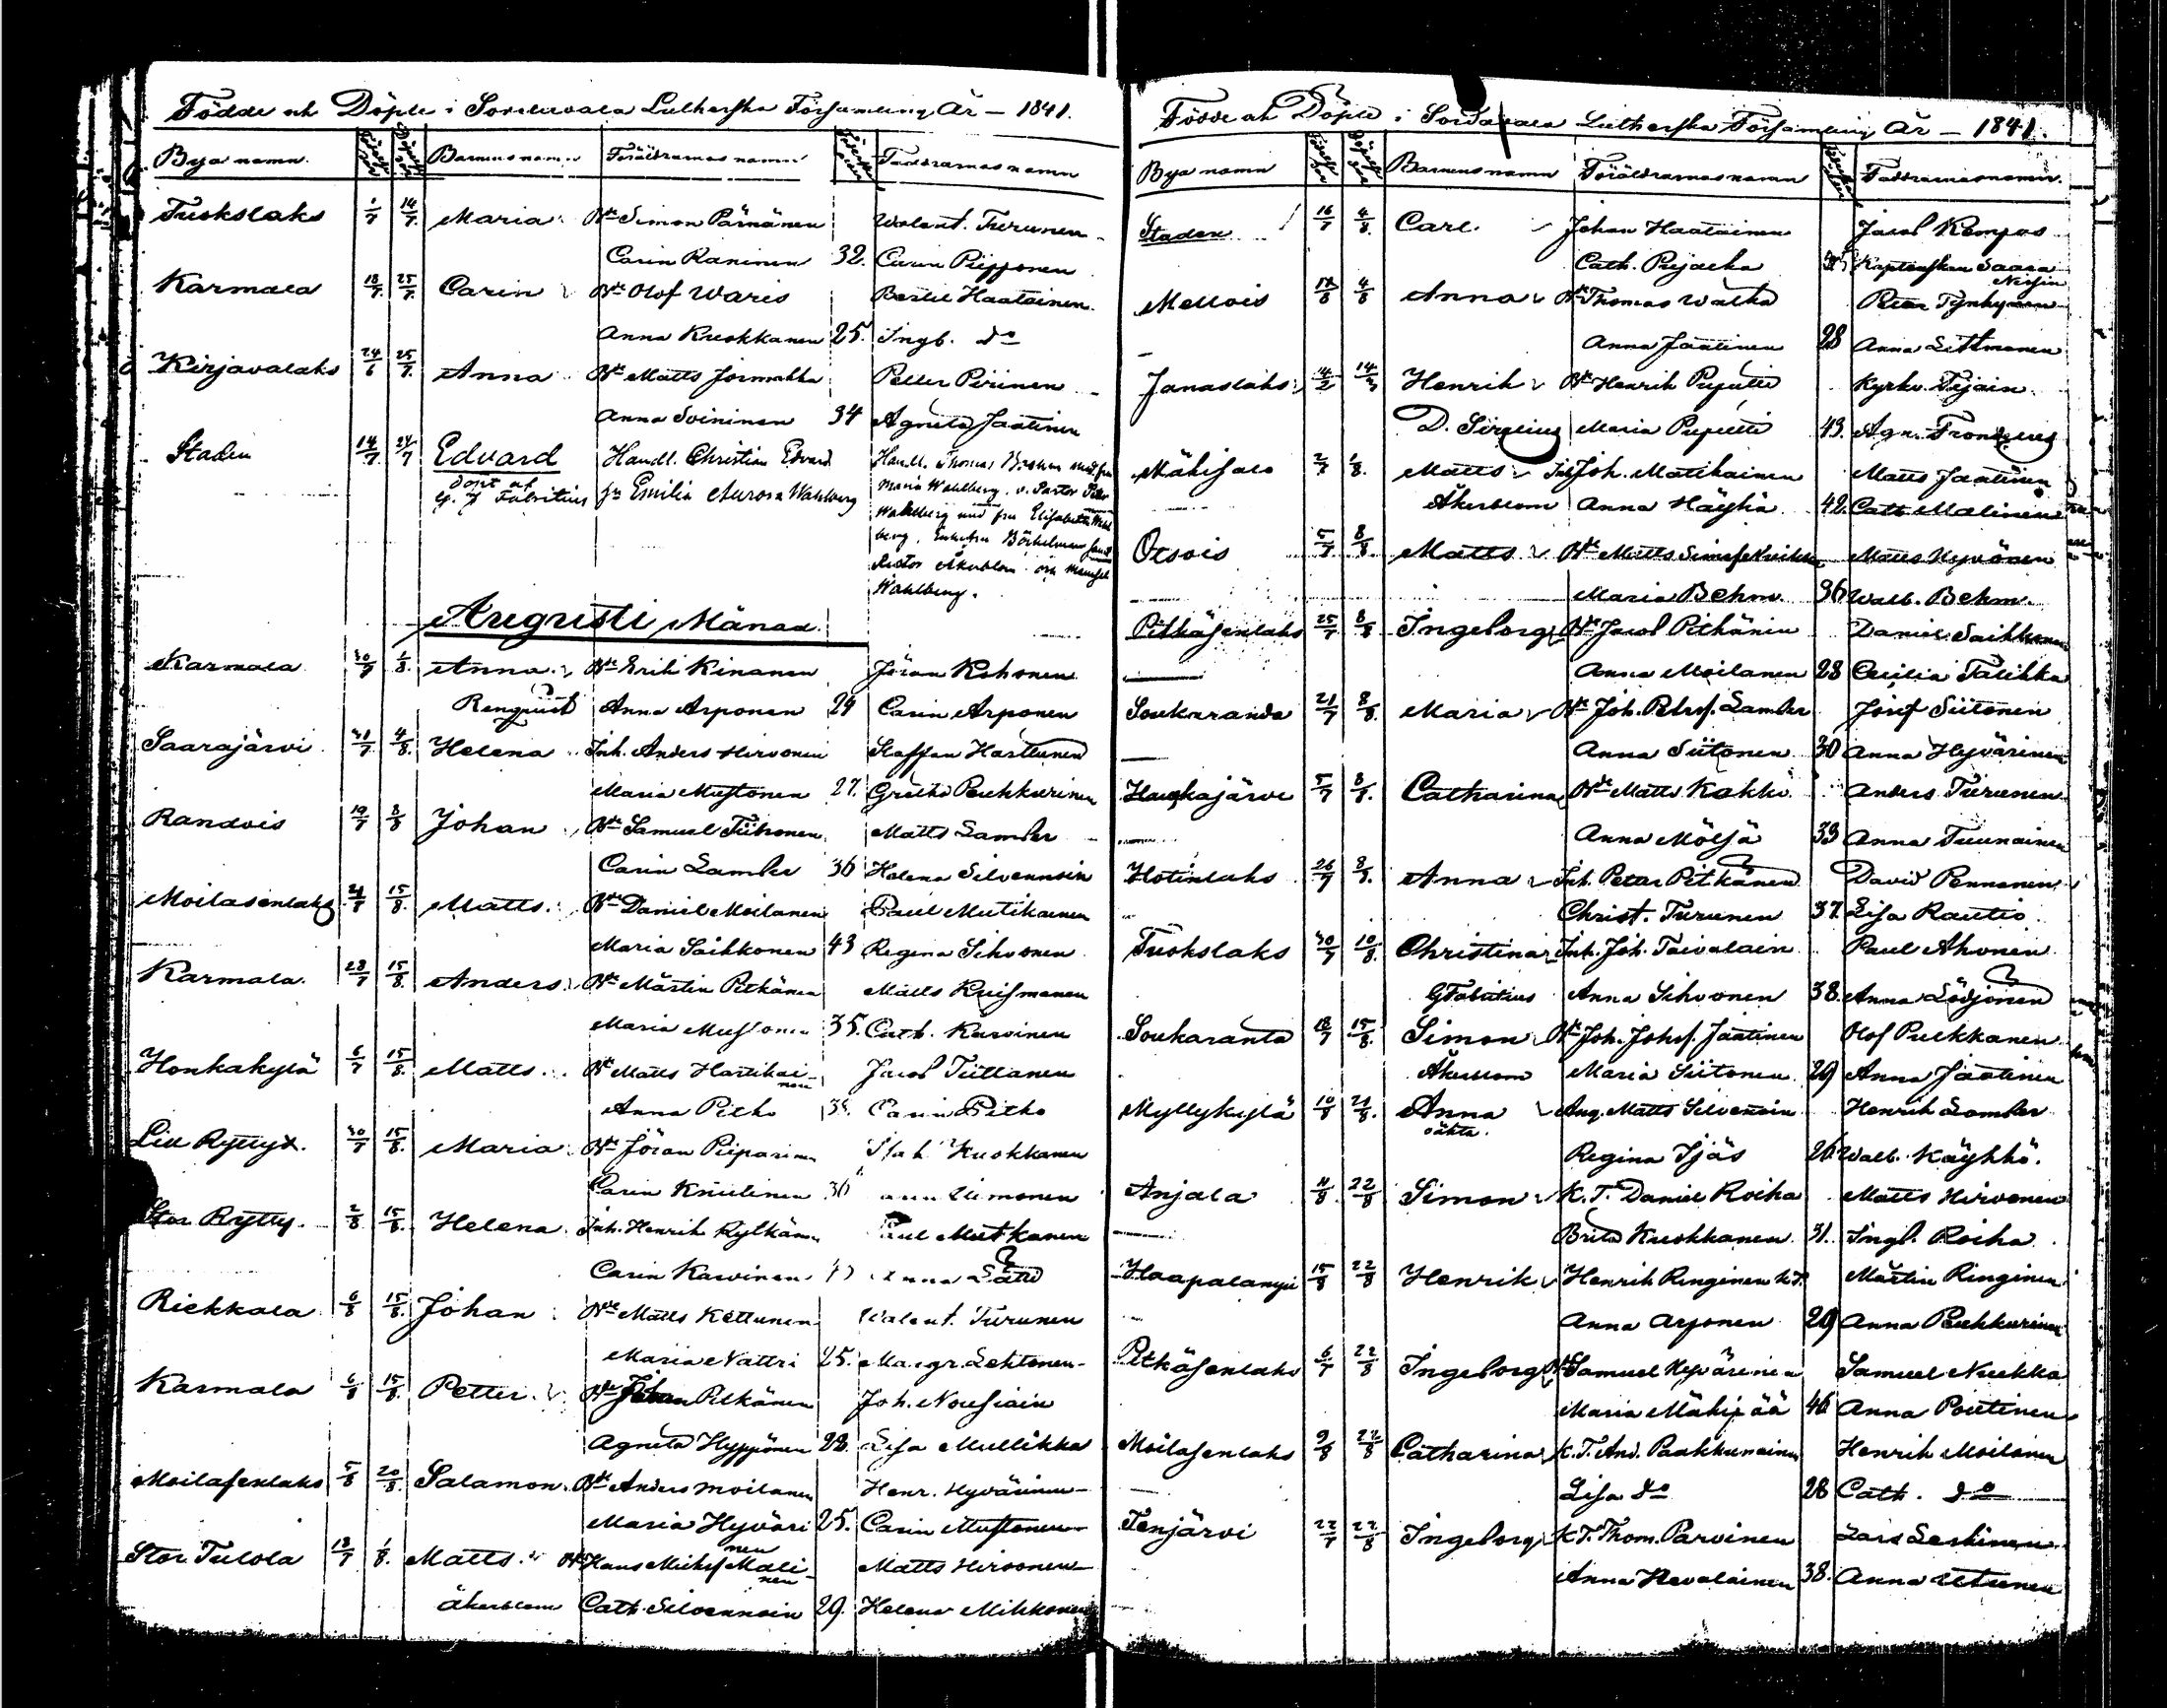 Födde och Döpte i Sordavala Lutherska Församling År — 1841.
Bya namn. Födelse dag Döpelse dag Barnens namn Föräldrarnas namn Faddrarnas namn
Tuokslaks 1/7 14/7. Maria. Bde Simon Pärnänen Valent. Turunen
Carin Raninen 32. Carin Piipponen
Karmala 18/7. 25/7. Carin Bde Olof Waris Bertil Haatainen.
Anna Kuokkanen 25. Ingb. do
Kirjavalaks 24/6 25/7. Anna Bde Matts Jormakka Petter Piirinen
Anna Soininen 34 Agneta Jaatinen
Staden 14/7. 24/7 Edvard Handl. Christian Edvard Handl. Thomas med fru
döpt af G. Fabritius fr Emilia Aurora Wahlberg Maria Wahlberg. v. Pastor Petter
Wahlberg med fru Elisabeth Wahl
berg, Enkefru
Rector Åkerblom och Mamsell
Wahlberg.
Augusti Månad.
Karmala 30/7 1/8. Anna. Bde Erik Kinanen Jöran Kohonen
Renquist Anna Arponen 29 Carin Arponen
Saarajärvi 31/7 4/8. Helena Inh. Anders Hirvonen Staffan Harttunen
Maria Mustonen 27. Gretha Puhkurinen
Randois 19/7 8/8 Johan Bde Samuel Tiihonen Matts Lamber
Carin Lamber 36 Helena Silvennoin
Moilasenlaks 21/7 15/8. Matts. Bde Daniel Moilanen Paul Mutikainen
Maria Saikkonen 43 Regina Sihvonen
Karmala. 28/7 15/8. Anders. Bde Mårtin Pitkänen Matts Kuismanen
Maria Mustonen 35. Cath. Karvinen
Honkakylä 6/7 15/8. Matts. Bde Matts Hartikai-
nen Jacob Tiittanen
Anna Pitko Carin Pitko
Lill Ryttyx. 30/7 15/8. Maria. Bde Jöran Piiparinen Kuokkanen
Carin Knuutinen 36
Stor Rytty. 2/8 15/8. Helena. Inh. Henrik Rytkänen Paul Mutkanen
Carin Karvinen Anna Lätti
Riekkala 6/8 15/8. Johan Bde Matts Kettunen Valent. Turunen
Maria Nattri 25. Margr. Lehtonen
Karmala 6/8 15/8. Petter. Bde Johan Pitkänen Joh. Nousiain
Agneta Hyppönen 28. Lisa Mullikka
Moilasenlaks 5/8 20/8. Salamon. Bde Anders Moilanen Henr. Hyvärinen
Maria Hyväri
nen 25. Carin Mustonen
Stor Tulola 18/7 1/8. Matts. Bde Hans Michs. Mali-
nen Matts Hirvonen
Åkerblom Cath. Silvennoin 29. Helena Mikkonen
Födde och Döpte i Sordavala Lutherska Församling År — 1841.
Bya namn Födelse dag Döpelse dag Barnens namn Föräldrarnas namn Faddrarnas namn.
Staden 16/7 4/8. Carl. Johan Haatainen Jacob Kempas
Cath. Kaptenskan Saara
Mellois 17/8 4/8 Anna Bde Thomas Walka Petter Tynkynen
Anna Jaatinen 28 Anna Littmanen
Janaslaks 14/2 14/3 Henrik Bde Henrik Puputti Kyrkv. Ijäin
D. Sirelius Maria Puputti 43. Agn. Fronterus
Mäkisalo 2/7 1/8. Matts Inh Joh. Matikainen Matts Jaatinen
Åkerblom Anna Häyhä 42. Cath Malinen
Otsois 5/7. 8/8. Matts Bde Matts Matts Hyvönen
Maria Behm. 36 Walb. Behm.
Pitkäsenlaks 25/7 8/8 Ingeborg Bde Jacob Pitkänen Daniel Saikkonen
Anna Moilanen 28 Cecilia Talikka
Soukaranda 21/7 8/8. Maria Bde Joh. Petrs. Lamber Josef Siitonen
Anna Siitonen 30 Anna Hyvärinen
Haukajärvi 5/7 8/8. Catharina Bde Matts Kokko Anders Turunen
Anna Möljä 33 Anna Tuunainen
Hotinlaks 26/7 8/8. Anna Inh. Petter Pitkänen David Pennanen
Christ. Turunen 37. Lisa Rautio
Tuokslaks 30/7 10/8. Christina Inh. Joh. Taivalain Paul Ahonen
G Fabritius Anna Sihvonen 38. Anna Lödjönen
Soukaranta 18/7 15/8. Simon Bde Joh. Johs. Jäätinen Olof Pulkkanen
Åkerblom Maria Siitonen 29 Anna Jäätinen
Myllykylä 10/8 21/8. Anna Ang. Matts Silvennoin Henrik Lamber
oäkta. Regina Ijäs 26 Walb. Käyhkö.
Anjala 11/8. 22/8 Simon K.T. Daniel Roiha Matts Hirvonen
Brita Kuokkanen 31. Ingb. Roiha
Haapalampi 15/8 22/8 Henrik Henrik Ringinen k.T. Mårtin Ringinen
Anna Arponen 29 Anna Puhkurinen
Pitkäsenlaks 6/7 22/8 Ingeborg Bde Samuel Hyvärinen Samuel Nukka
Maria Mäkipää 46 Anna Poutinen
Moilasenlaks 9/8 22/8 Catharina K.T. And. Paakkunainen Henrik Moilanen
Lisa do 28 Cath. do
Tenjärvi 22/7 22/8 Ingeborg K.T. Thom. Parvinen Lars Leskinen
Anna Hevolainen 38. Anna Utunen